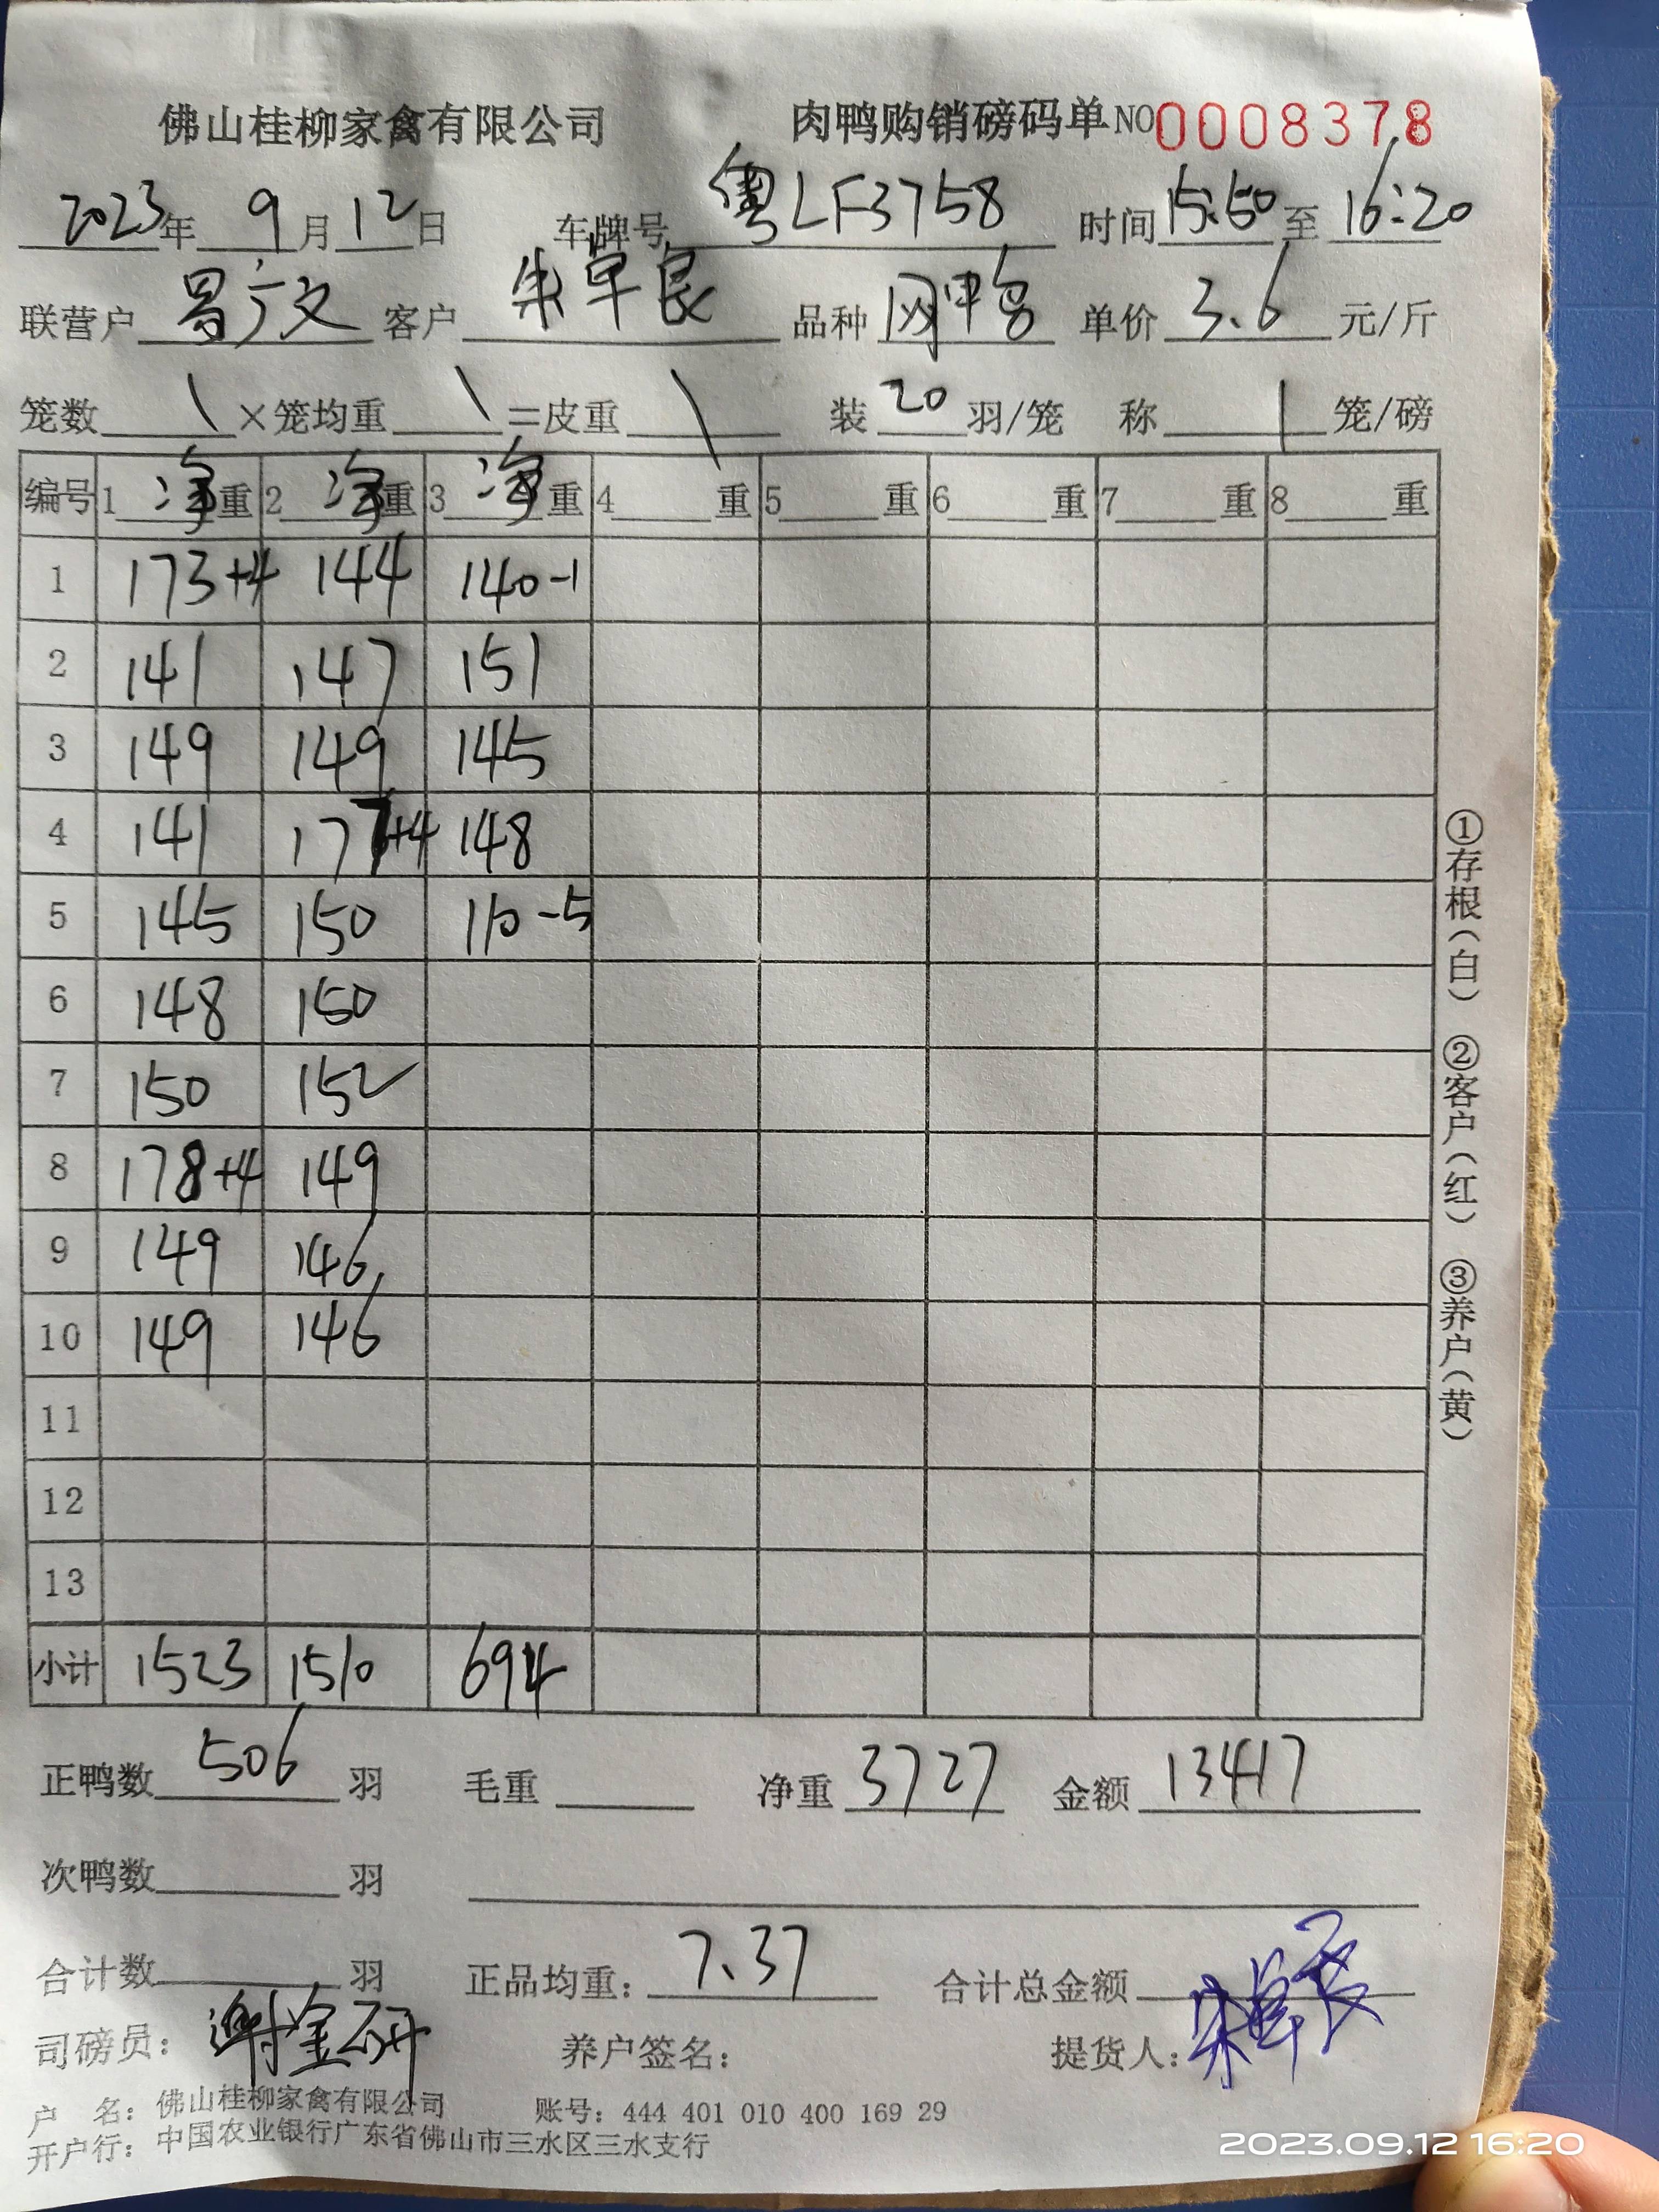 佛山桂柳家禽有限公司 肉鸭购销磅码单 NO 0008378
2023年 9月12日 车牌号 粤LF3758 时间 15:50 至 16:20
联营户 客户 朱早良 品种 网鸭 单价 3.6 元/斤
笼数 \ ×笼均重 \ =皮重 \ 装 20 羽/笼 称 1 笼/磅
编号 1 净重 2 净重 3 净重 4 重 5 重 6 重 7 重 8 重
1 173+4 144 140-1
2 141 147 151
3 149 149 145
4 141 177+4 148
5 145 150 110-5
6 148 150
7 150 152
8 178+4 149
9 149 146
10 149 146
11
12
13
小计 1523 1510 694
正鸭数 506 羽 毛重 净重 3727 金额 13417
次鸭数 羽
合计数 羽 正品均重: 7.37 合计总金额
司磅员: 谢金研 养户签名: 提货人:
户 名: 佛山桂柳家禽有限公司 账号: 444 401 010 400 169 29
开户行: 中国农业银行广东省佛山市三水区三水支行
①存根(白) ②客户(红) ③养户(黄)
2023.09.12 16:20